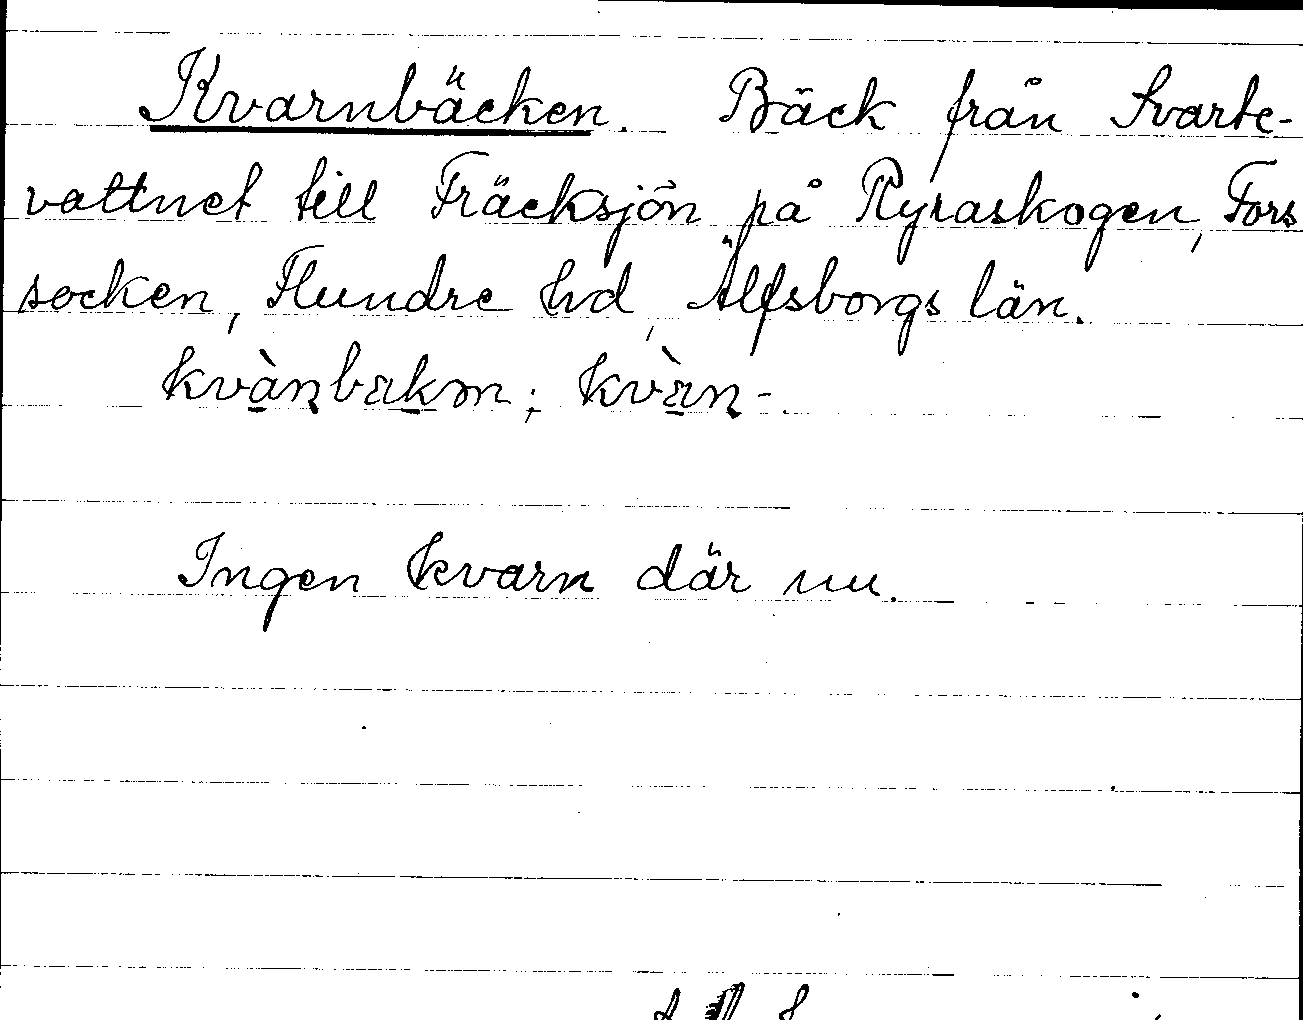 Kvarnbäcken. Bäck från Svarte-
vattnet till Fräcksjön på Ryraskogen, Fors
socken, Flundre hd, Älfsborgs län.
kvànbækən; kvæ̀n-.
Ingen kvarn där nu.